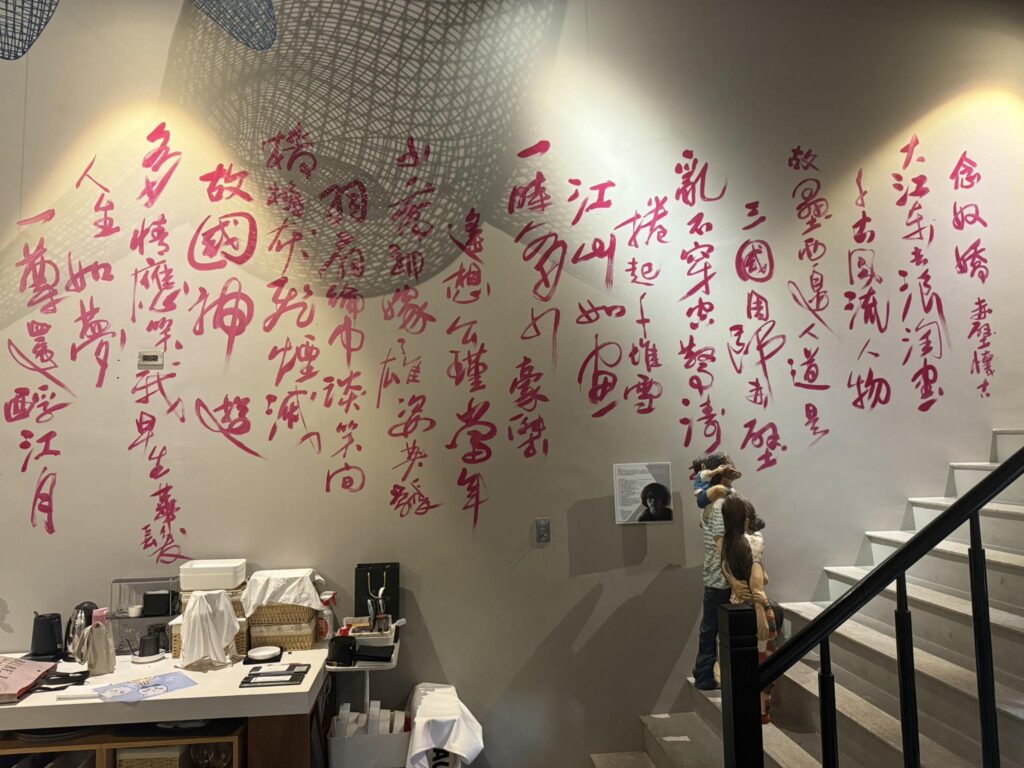 念奴嬌 赤壁懷古
大江東去浪淘盡
千古風流人物
故壘西邊人道是
三國周郎赤壁
亂石穿空驚濤
捲起千堆雪
江山如畫
一時多少豪傑
遙想公瑾當年
小喬初嫁雄姿英發
羽扇綸巾談笑間
檣櫓灰飛煙滅
故國神遊
多情應笑我早生華髮
人生如夢
一尊還酹江月